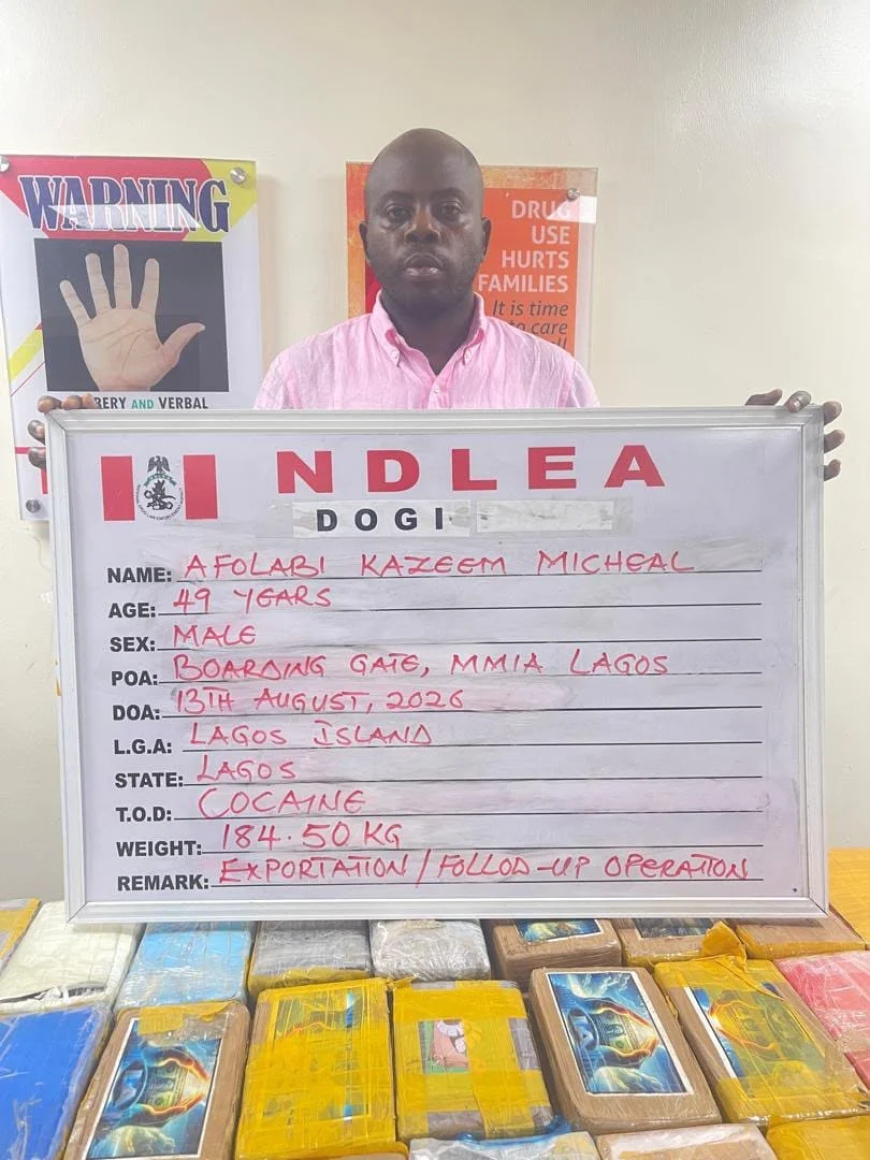 WARNING
BERY AND VERBAL
DRUG
USE
HURTS
FAMILIES
It is time
to care
NDLEA
DOGI
NAME: AFOLABI KAZEEM MICHEAL
AGE: 49 YEARS
SEX: MALE
POA: BOARDING GATE, MMIA LAGOS
DOA: 13TH AUGUST, 2026
L.G.A: LAGOS ISLAND
STATE: LAGOS
T.O.D: COCAINE
WEIGHT: 184.50 KG
REMARK: EXPORTATION/FOLLOD-UP OPERATION